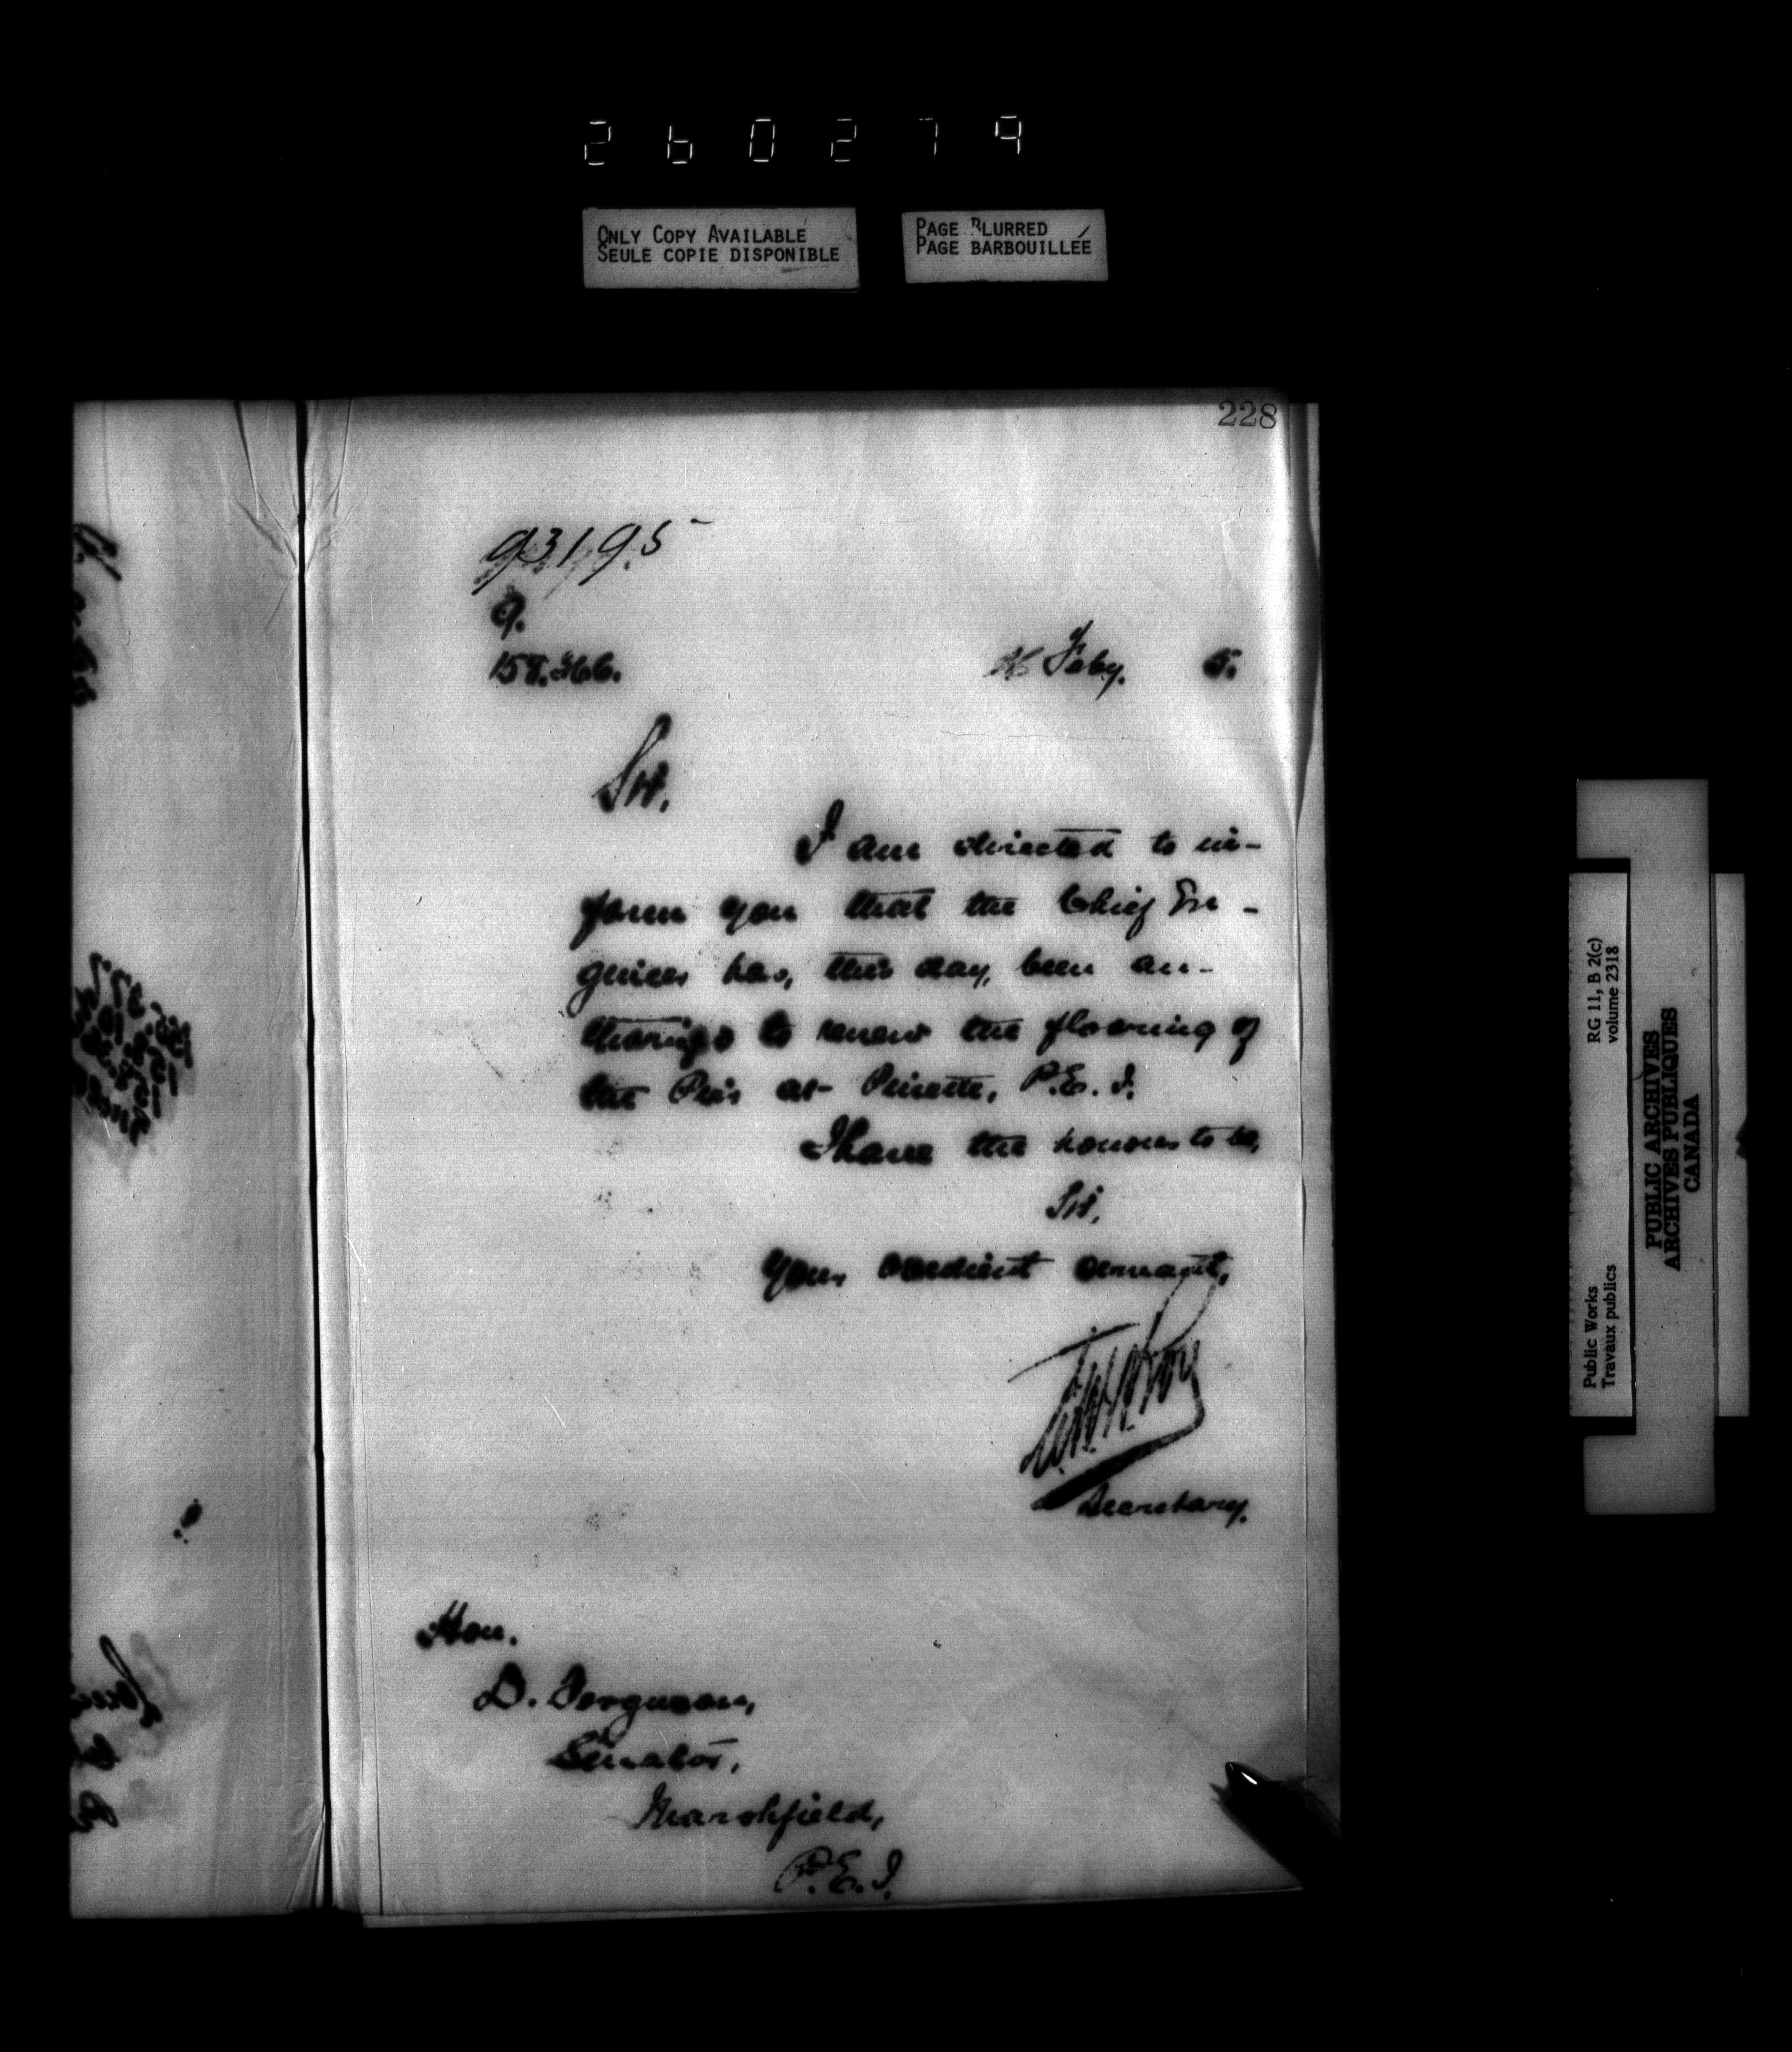 260279
ONLY COPY AVAILABLE
SEULE COPIE DISPONIBLE
PAGE BLURRED
PAGE BARBOUILLÉE
228
93195
9.
Feby. 5.
Sir,
I am directed to in-
form you that the Chief En-
gineer has, this day, been au-
thorized to renew the flooring of
the Pier at Pinette, P.E.I.
I have the honour to be,
Sir,
Your obedient servant,
Secretary.
Hon.
D. Ferguson,
Senator,
Marshfield,
P.E.I.
Public Works
Travaux publics
RG 11, B 2(c)
volume 2318
PUBLIC ARCHIVES
ARCHIVES PUBLIQUES
CANADA